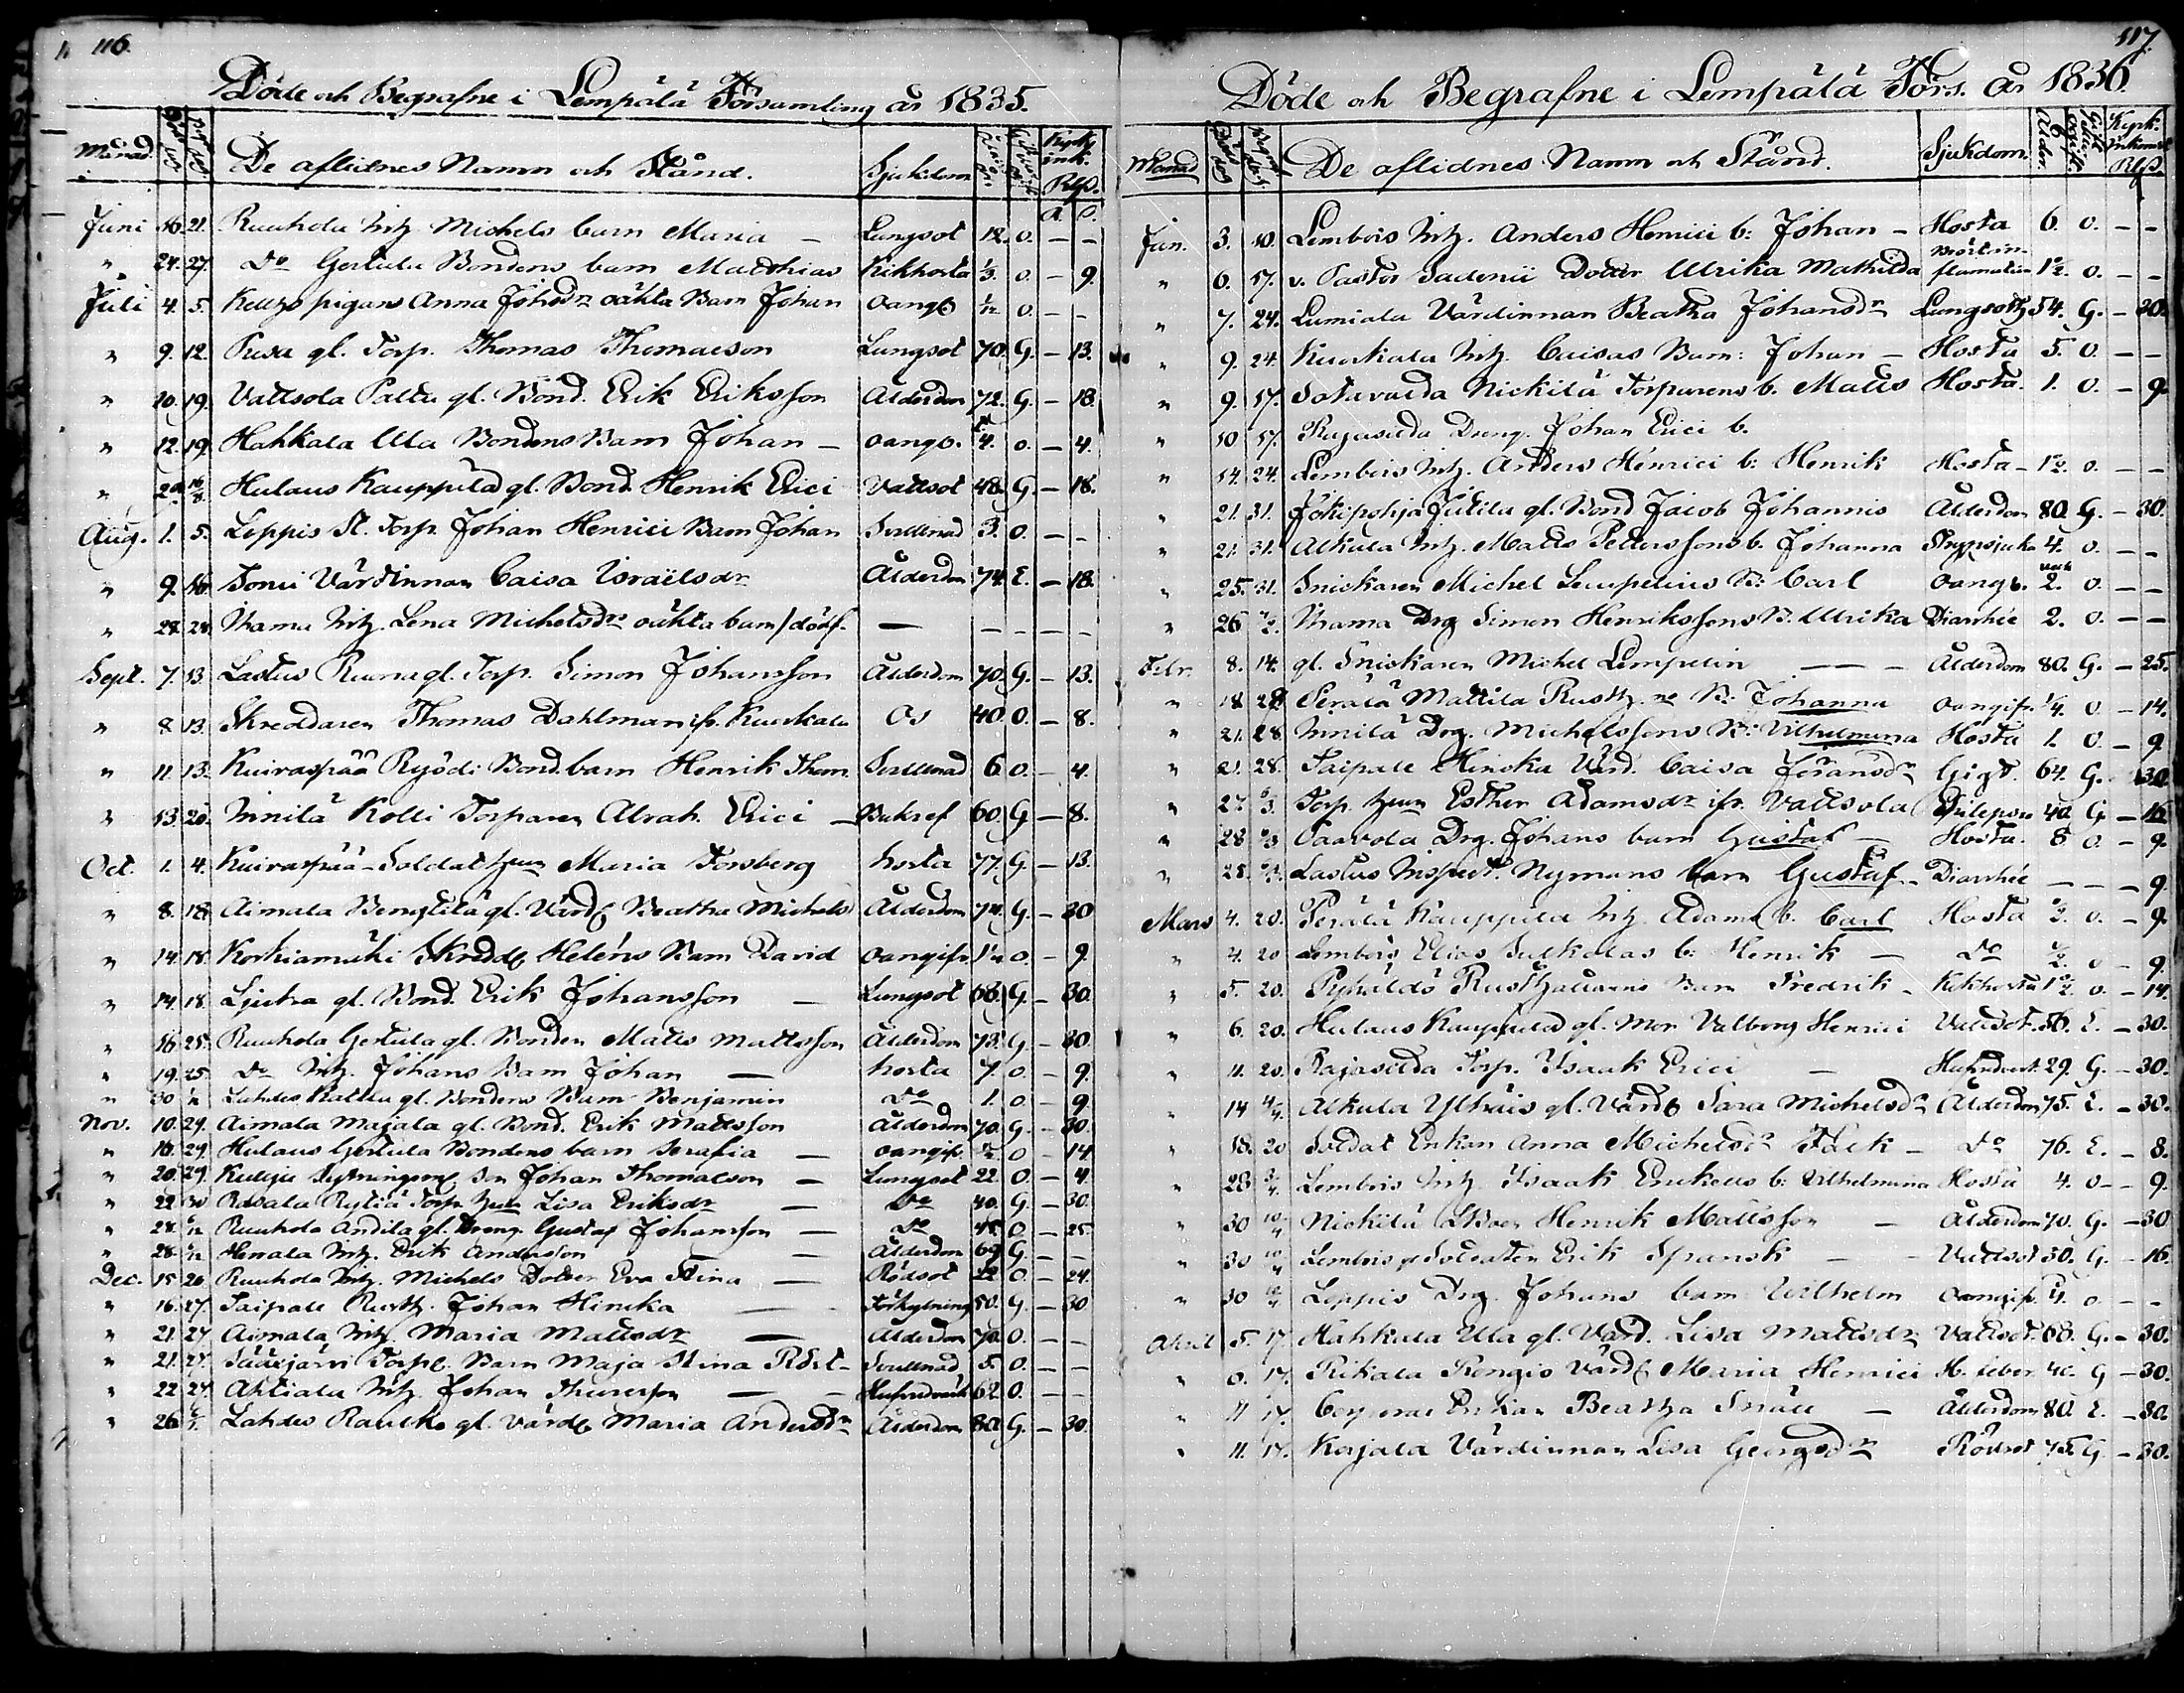 116.
Döde och Begrafne i Lempälä Församling år 1835.
Månad. De aflidnes Namn och Stånd. Sjukdom Rbs.
Juni 16. 21. Ruuhola Inh. Michels barn Maria — Lungsot 12. o. — —
" 24. 27. Do Gertula Bondens barn Matthias Kikhosta 1/3. o. — 9.
Juli 4. 5. pigans Anna Johsdr oäkta Barn Johan oangb 1/12 o. — —
" 9. 12. gl. Torp. Thomas Thomasson Lungsot 70. G. — 13.
" 10. 19. Vattsola Paltu gl. Bond. Erik Eriksson Ålderdom 72. G. — 18.
" 12. 19. Hahkala Ula Bondens Barn Johan — oangb. 4. o. — 4.
" 16/8. Hulaus Kauppila gl. Bond. Henrik Erici Vattsot 48. G. — 18.
Aug. 1. 5. Leppis St. Torp. Johan Henrici Barn Johan 3. o. — —
" 9. 16. Värdinnan Caisa Israelsdr Ålderdom 74. E. — 18.
" 28. 28. Inh. Lena Michelsdr oäkta barn/dödf. — — — — —
Sept. 7. 13. Lastus gl. Torp. Simon Johansson Ålderdom 70. G. — 13.
" 8. 13. Skreddaren Thomas Dahlman ifr. Kuokala Os 40. o. — 8.
" 11. 13. Kuiraspää Ryödi Bond. barn Henrik Thom. 6 o. — 4.
" 13. 20. Innilä Kolli Torparen Abrah. Erici — Bukref 60. G — 8.
Oct. 1. 4. Kuiraspää Soldat Maria Forsberg hosta 77. G. — 13.
" 8. 18. Aimala Bengtilä gl. Värd Beatha Michels Ålderdom 74. G. — 30
" 14. 18. Korkiamäki Skredd Heléns Barn David oangifv o. — 9.
" 14. 18. Ljuha gl. Bond. Erik Johansson — Lungsot 66. G. — 30.
" 16. 25. Ruuhola Gertula gl. Bonden Matts Mattsson Ålderdom 73. G. — 30.
" 19. 25. Do Inh. Johans Barn Johan — hosta 7. o — 9.
" 30 Lahdes gl. Bondens Barn Benjamin Do 1. o — 9.
Nov. 10. 29. Aimala Majala gl. Bond. Erik Mattsson Ålderdom 70. G. — 30.
" 16. 29. Hulaus Gertula Bondens barn Serafia — oangifv. o — 14
" 20. 29. Kulju son Johan Thomasson — Lungsot 22. o — 4.
" 22 30 Lisa Eriksdr — Do 40. G — 30.
" 28. Ruuhola Andila gl. Dreng Gustaf Johansson — Do 45. o — 25.
" 28. Henala Inh. Erik Andersson — Ålderdom 69. G. — —
Dec. 15 20. Ruuhola Inh. Michels Dotter Eva Stina — Rödsot 22 o — 24.
" 16. 27. Saipale Rusth. Johan Hinska — Förkylning 50. G. — 30
" 21. 27. Aimala Inh. Maria Mattsdr — Ålderdom 70. o. — —
" 21. 27. Sääxjärvi Torp. Barn Maja Stina 5. o. — —
" 22 27. Ahtiala Inh. Johan — Hufvudvärk 62. o. — —
" 26. Lahdes gl. Värd Maria Andersdr Ålderdom 80. G. — 30.
117.
Döde och Begrafne i Lempälä Förs. år 1836.
Månad De aflidnes Namn och Stånd. Sjukdom. Ålder. Kyrk. Inkomst Rbs.
Jan. 3. 10. Lembois Inh. Anders Henrici b: Johan — Hosta 6. o. — —
" 6. 17. v. Pastor Sadenii Dotter Ulrika Mathilda o. — —
" 7. 24. Lumiala Värdinnan Beatha Johansdr Lungsot 54. G. — 30.
" 9. 24. Kuokala Inh. Caisas Barn: Johan — Hosta 5. o. — —
" 9. 17. Sotavalda Nickilä Torparens b. Matts Hosta. 1. o. — 9.
" 10 17. Rajasilda Dreng. Johan Erici b.
" 14. 24. Lembois Inh. Anders Henrici b: Henrik Hosta — 1/2. o. — —
" 21. 31. Jokipohja Jutila gl. Bond Jacob Johannis Ålderdom 80. G. — 30.
" 21. 31. Alkula Inh. Matts Petterssons b. Johanna Strypsjuka 4. o. — —
" 25. 31. Snickaren Michel Lempelins B: Carl oangb. 2. o. — —
" 26 Drg Simon Henrikssons B. Ulrika Diarrhée 2. o. — —
Febr. 8. 14. gl. Snickaren Michel Lempelin — — Ålderdom 80. G. — 25.
" 18 28 Perälä Mattila Rusth. B: Johanna oangifv. 1/4. o. — 14.
" 21. 28 Innilä Drg. Michelssons B: Vilhelmina Hosta 1. o. — 9
" 21. 28. Saipale Hinska Värd. Caisa Johansdr Gigt. 64. G. 30
" 27. Torp. Esther Adamsdr ifr. Vattsola 40 G — 16
" 28 Paavola Drg. Johans barn Gustaf — Hosta. 8 o. — 9.
" 28. Lastus Inspect. Nymans barn Gustaf — Diarrhée — — — 9.
Mars 4. 20. Perälä Kauppila Inh. Adams b. Carl Hosta o. — 9.
" 4. 20 Lembois Elias b: Henrik — Do 1/2. o — 9.
" 5. 20. Pyhäldö Rusthållarens Barn Fredrik — Kikhosta o. — 14.
" 6. 20. Hulaus Kauppila gl. Mor Valborg Henrici Vattsot. 56. E. — 30.
" 11. 20. Rajasilda Torp. Isaak Erici — 29. G. — 30.
" 14 Alkula Ylhäis gl. Värd Sara Michelsdr Ålderdom 75. E. — 30.
" 18. 20 Soldat Enkan Anna Michelsdr Falk — Do 76. E. — 8.
" 28 3/4. Lembois Inh. Isaak b: Vilhelmina Hosta 4. o — 9.
" 30 10/4 Nickilä Henrik Mattsson — Ålderdom 70. G. — 30
" 30 10/4 Lembois Soldaten Erik Spansk — Vattsot 30. G. — 16.
" 30 Leppis Drg. Johans barn Wilhelm oangifv. 4. o. — —
April 5. 17. Hahkala Ula gl. Värd. Lisa Mattsdr Vattsot. 68. G. — 30.
" 6. 17. Rikala Rengis Värd Maria Henrici H. feber 40. G — 30.
" 11 17. Enkan Beatha — Ålderdom 80. E. — 30.
" 11. 17. Korjala Värdinnan Lisa Georgsdr Rödsot 75. G. — 30.